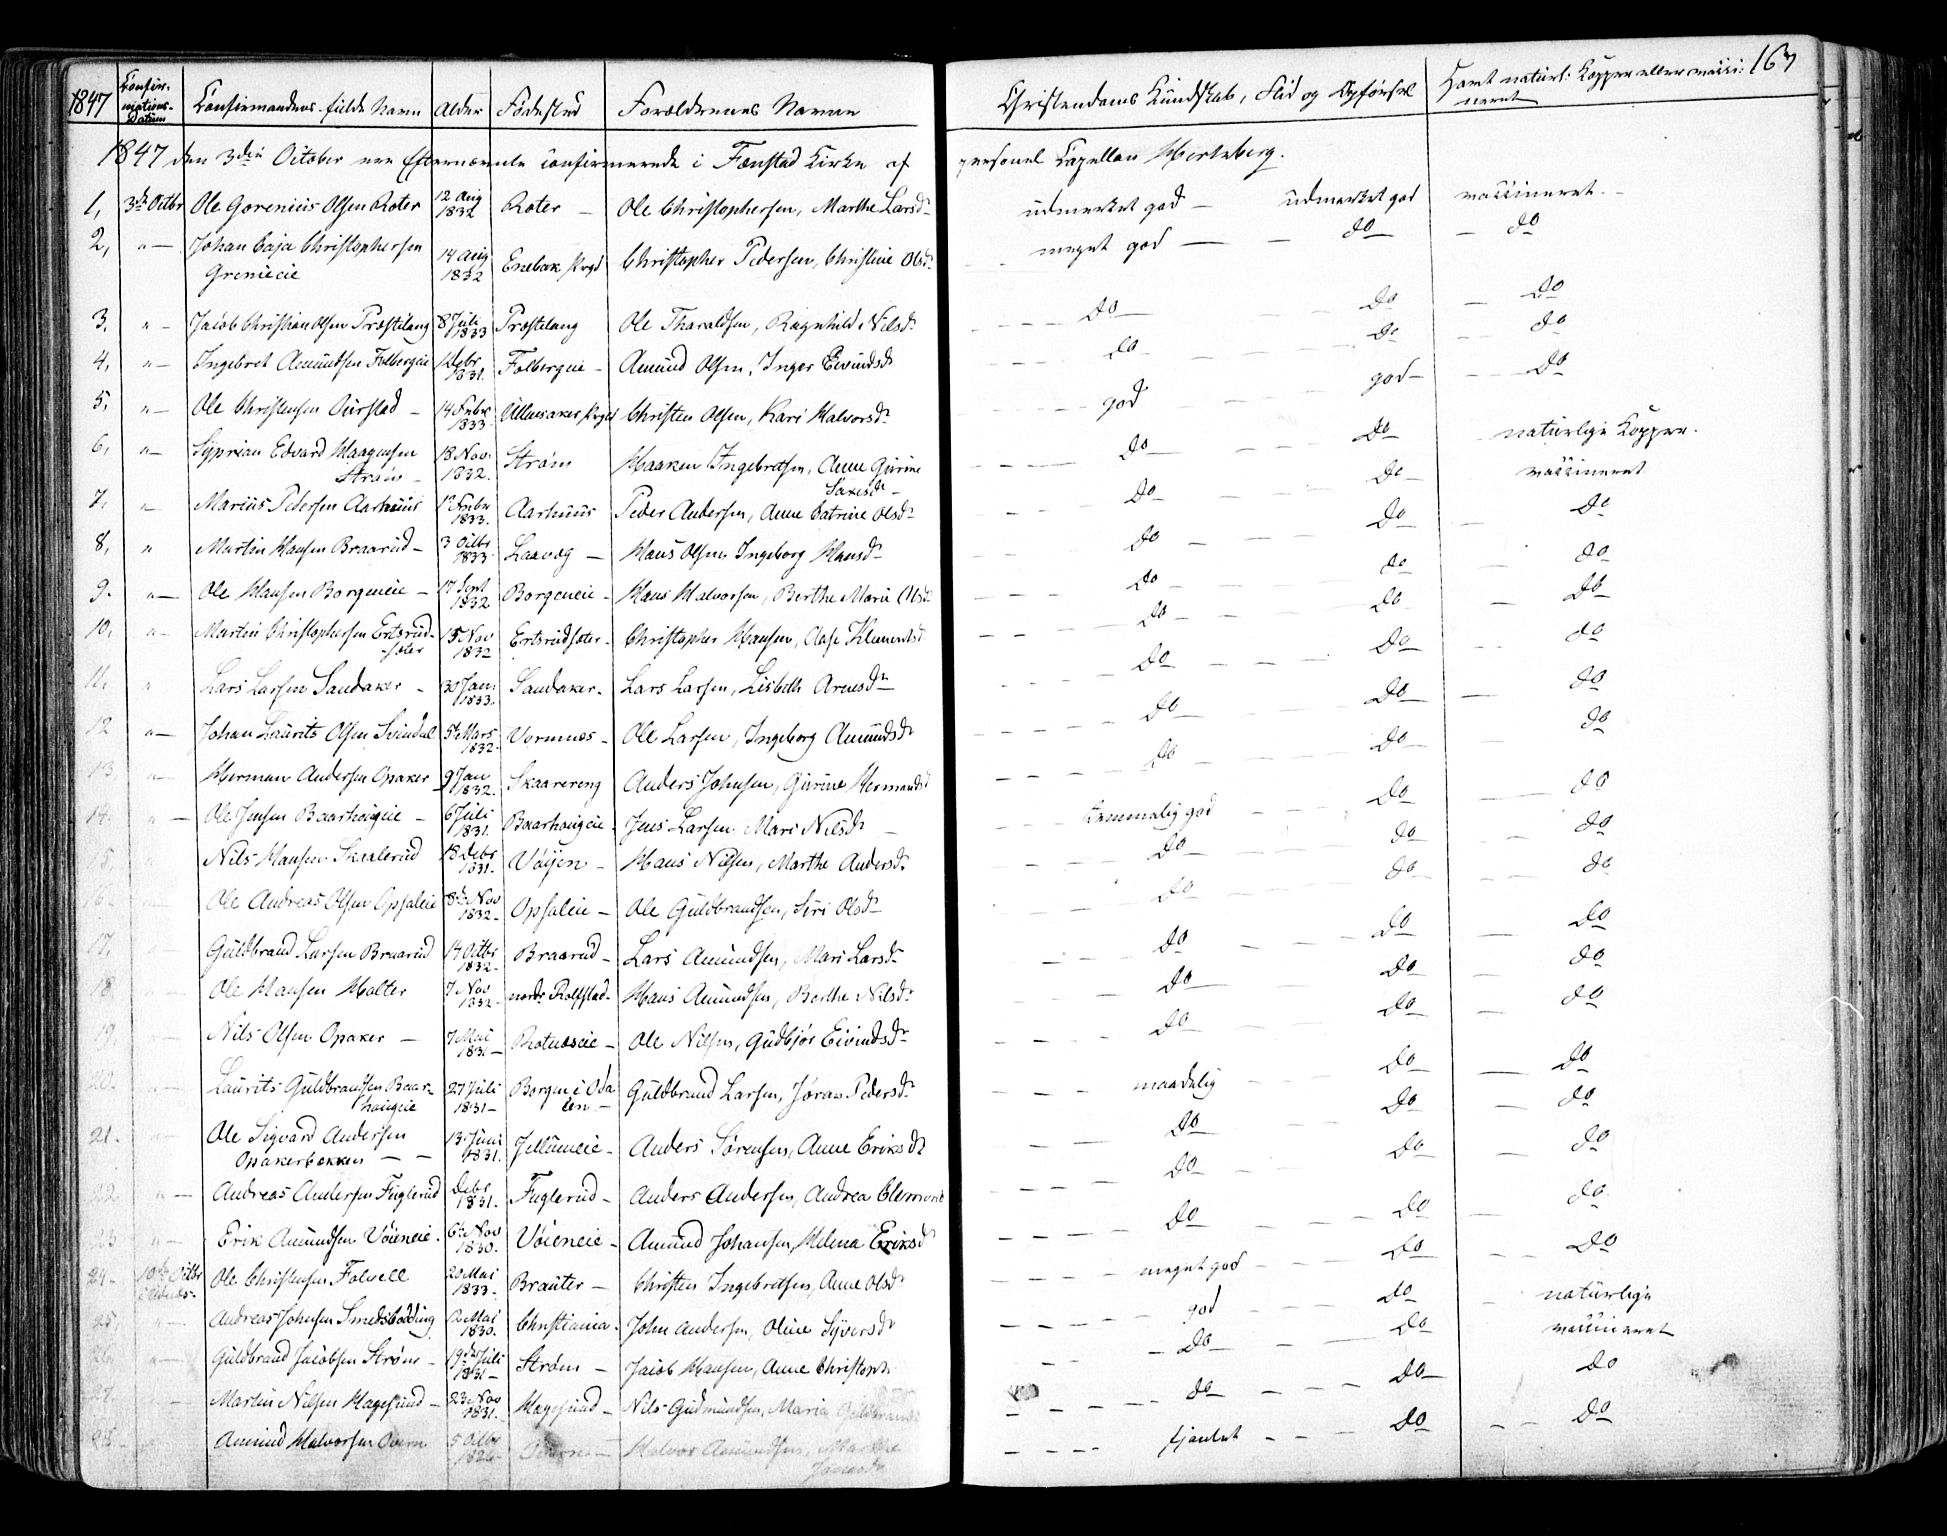 167
1847 Confirmations-Datum Confirmandens fulde Navn Alder Fødested Forældrenes Navne Christendoms Kundskab, Flid og Opførsel Havt naturl: Kopper eller vacci:neret
1847 den 3die October ere Efternævnte confirmerede i Fænstad Kirke af personel Capellan Hertzberg.
1, 3de Octbr Ole Gorenius Olsen Roter 12 Aug 1832 Roter — Ole Christophersen, Marthe Larsd. udmerket god — udmerket god vaccineret.
2, " — Johan Caja Christophersen Greniecie 14 Aug 1832 Enebak Prgd Christopher Pedersen, Christine Olsd. meget god — do — do
3, " — Jacob Christian Olsen Præstelang 8 Juli 1833 Præstelang Ole Tharaldsen, Ragnhild Nilsd. do do — do
4, " — Ingebret Amundsen Folbergeie Debr 1831. Folbergeie — Amund Olsen, Inger Eivindsd do do do
5, " — Ole Christensen — 14 Febr 1833 Ullensaker Prgd Christen Olsen, Kari Halvorsd. god god — do
6, " — Syprian Edvard Haagensen Strøm — 18 Nov. 1832. Strøm Haaken Ingebretsen, Anne Gurine do do naturlige Kopper.
7, " Marius Pedersen Aarhuus 1833. Aarhuus Peder Andersen, Anne Catrine Olsd. do do — vaccineret
8, " Martin Hansen Braarud — 3 Octbr 1833 Laavog — Hans Olsen, Ingeborg Hansd. do do — do
9. " — Ole Hansen Borgeneie — 17 Sept 1832 Borgeneie — Hans Halvorsen, Berthe Marie Olsd do do do
10, " — Martin Christophersen Ertsrudsæter 15 Nov 1832 Ertsrudsæter — Christopher Hansen, Aase Klementsd do do — do
11, " Lars Larsen Sandaker — 30 Jan. 1833. Sandaker. Lars Larsen, Lisbeth Arnesd. do do do
12 " — Johan Laurits Olsen Svindal 5 Mars 1832 Vormnæs — Ole Larsen, Ingeborg Amundsd. do do — do
13, " — Herman Andersen Opaker 9 Jan 1832. Skaarereng Anders Johnsen, Gurine Hermansd do do do
14. " — Ole Jensen Baarhaugeie — 6 Juli 1831. Baarhaugeie. Jens Larsen, Mari Nilsd. — temmelig god do — do
15 " Nils Hansen Skaalerud 18 Debr 1831. Vøyen — Hans Nilsen, Marthe Andersd. do do do
16 — Ole Andreas Olsen Opsaleie 8de Nov 1832 — Opsaleie — Ole Guldbrandsen, Siri Olsd. do do do
17, " Guldbrand Larsen Braarud 14 Octbr 1832 — Braarud — Lars Amundsen, Mari Larsd. do do — do
18 Ole Hansen Holter 7 Nov 1832 — nordr. Rolfstad — Hans Amundsen, Berthe Nilsd. do do — do
19 Nils Olsen Opaker — 7 Mai 1831 — Rotnæseie — Ole Nilsen, Gudbjør Eivindsd. do do — do
20. Laurits Guldbrandsen Baarhaugeie 27 Juli 1831 — Borgen i Odalen — Guldbrand Larsen, Jøran Pedersd. maadelig do — do
21. " — Ole Sigvard Andersen Opakerbakken — — 13. Juni 1831. Jellumeie — Anders Sørensen, Anne Eriksd do do — do
22. " — Andreas Andersen Fuglerud Debr 1831. Fuglerud — Anders Andersen, Andrea do do do
23 " — Erik Amundsen Vøieneie. 6te Nov 1830. Vøieneie — Amund Johansen, Helena Eriksd do do do
24. 10de Octbr Ole Christensen Folvell 20 Mai 1833 — Brauter — Christen Ingebretsen, Anne Olsd. meget god do do
25, " — Andreas Johnsen Smedsbodding 12 Mai 1830. Christiania. John Andersen, Oline Syversd. god do naturlige
26, " — Guldbrand Jacobsen Strøm — 19de Juli 1831 — Strøm — Jacob Hansen, Anne do do vaccineret
27, " — Martin Nilsen Hagesund — 23 Nov 1831. Hagesund — Nils Gudmundsen, Maria Guldbrands do do — do
28. — Amund Halvorsen 5 Octbr Halvor Amundsen, Marthe do — do